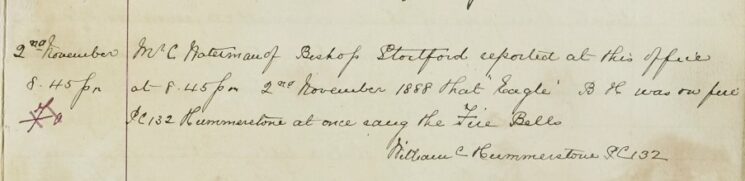 2nd November Mr C Waterman of Bishop Stortford reported at this office
8.45pm at 8.45pm 2nd November 1888 that "Eagle" B H was on fire
PC132 Hummerstone at once rang the Fire Bells
William C Hummerstone PC132